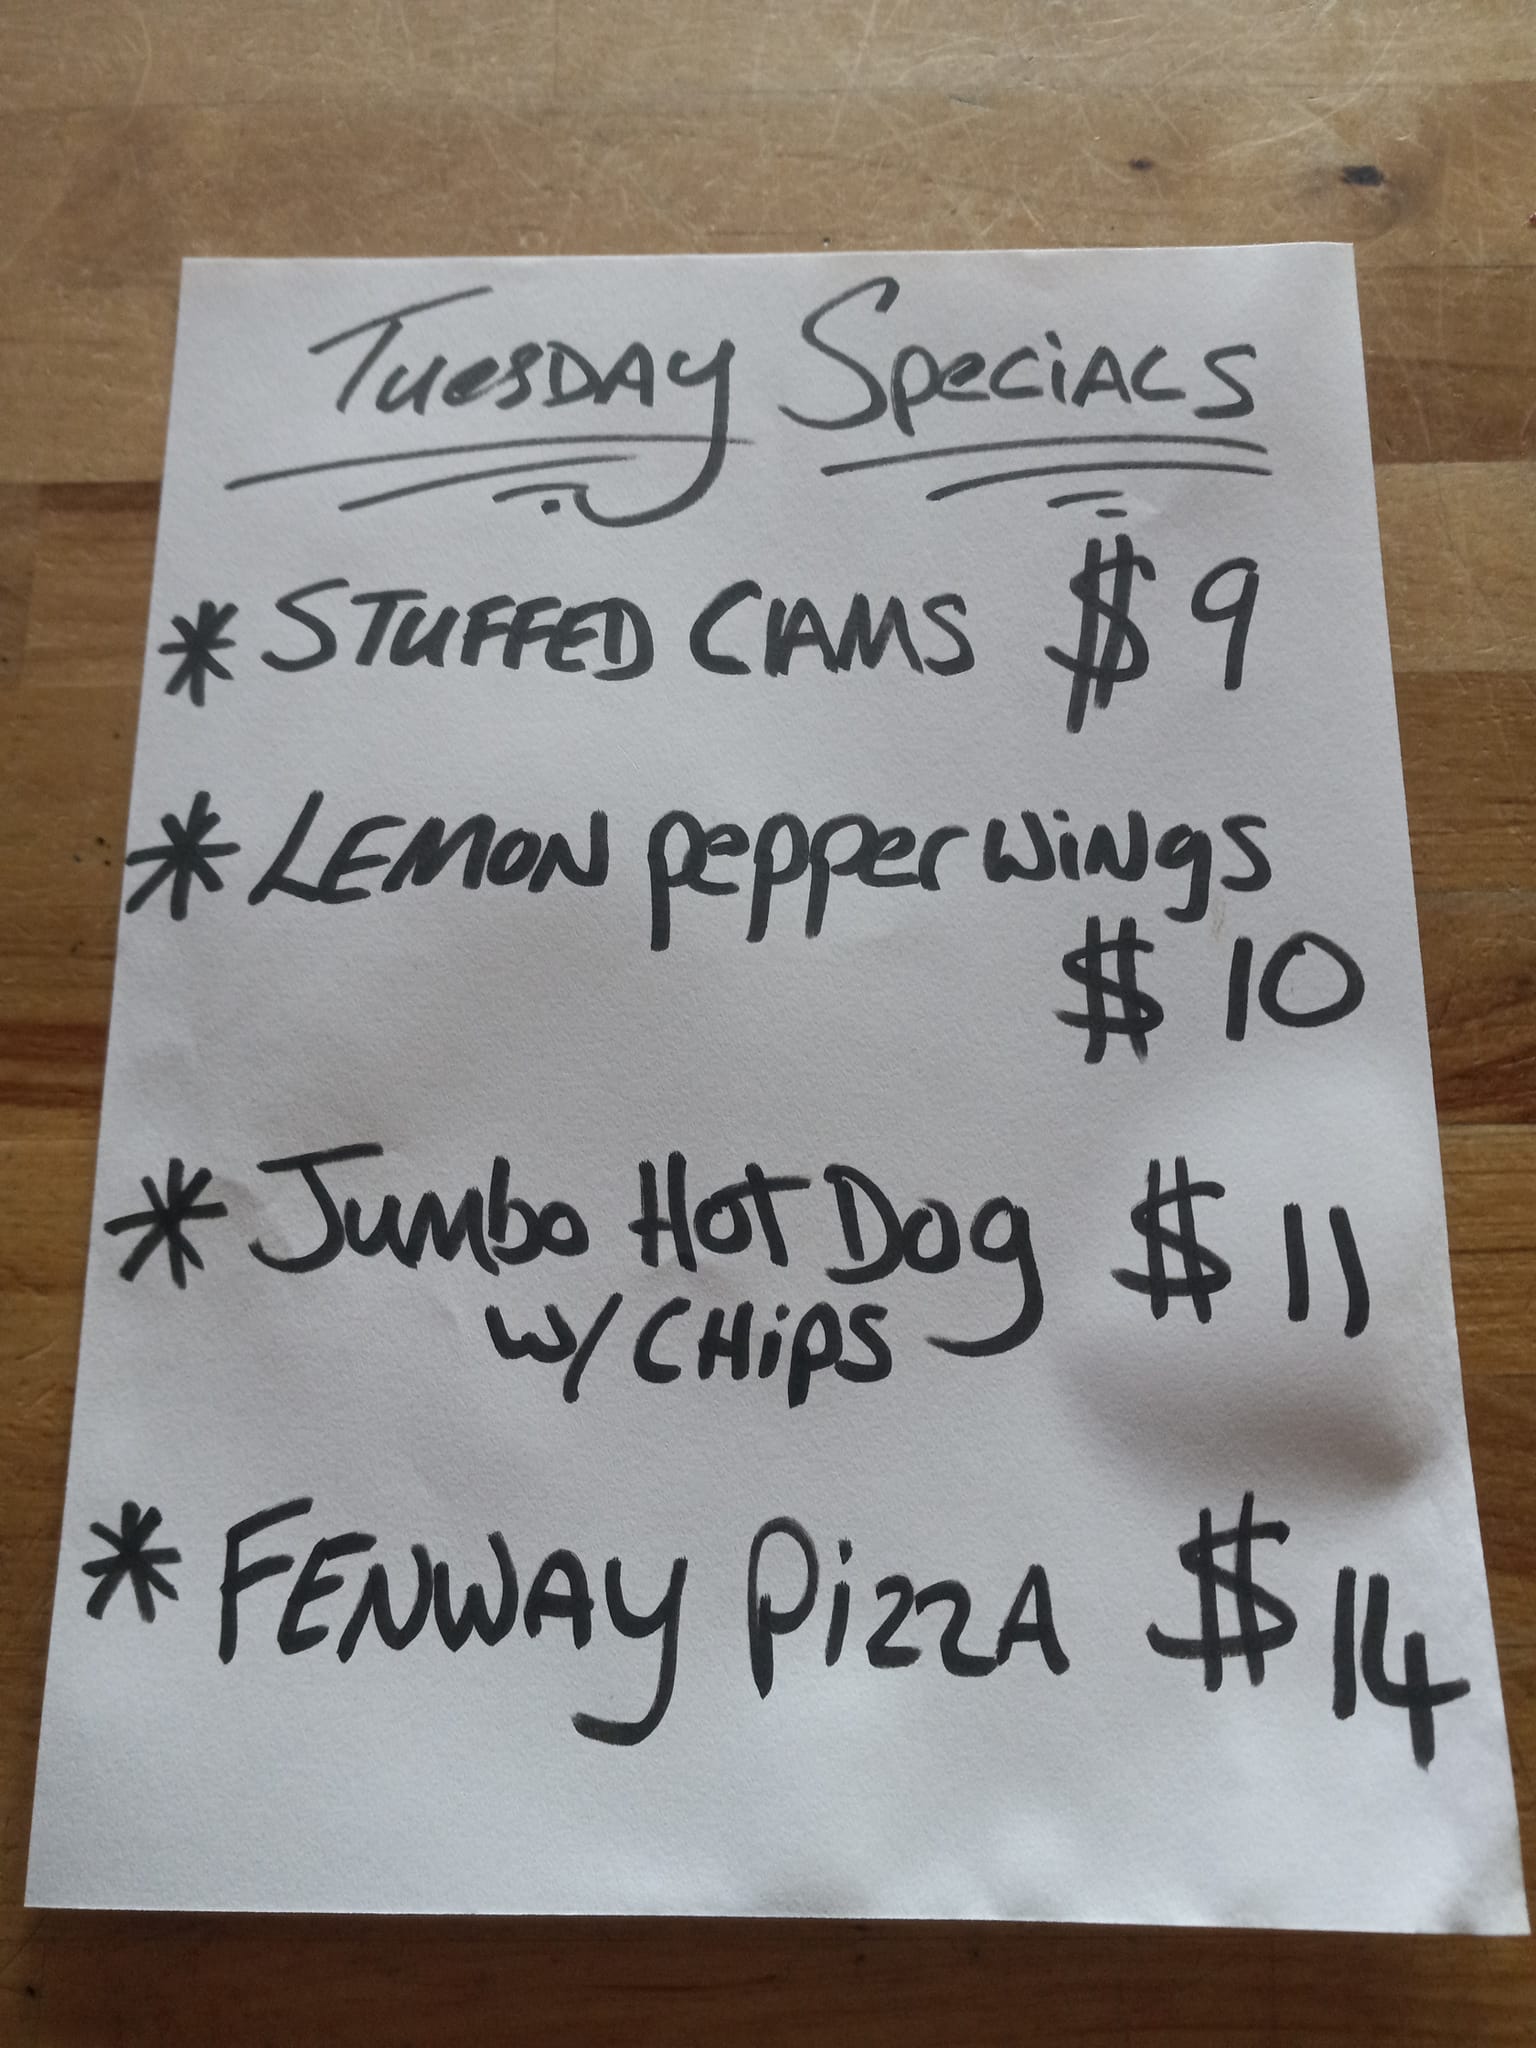 Tuesday Specials
* STUFFED CLAMS $9
* LEMON pepper wings
$10
* Jumbo Hot Dog $11
w/ CHips
* FENWAY PizzA $14